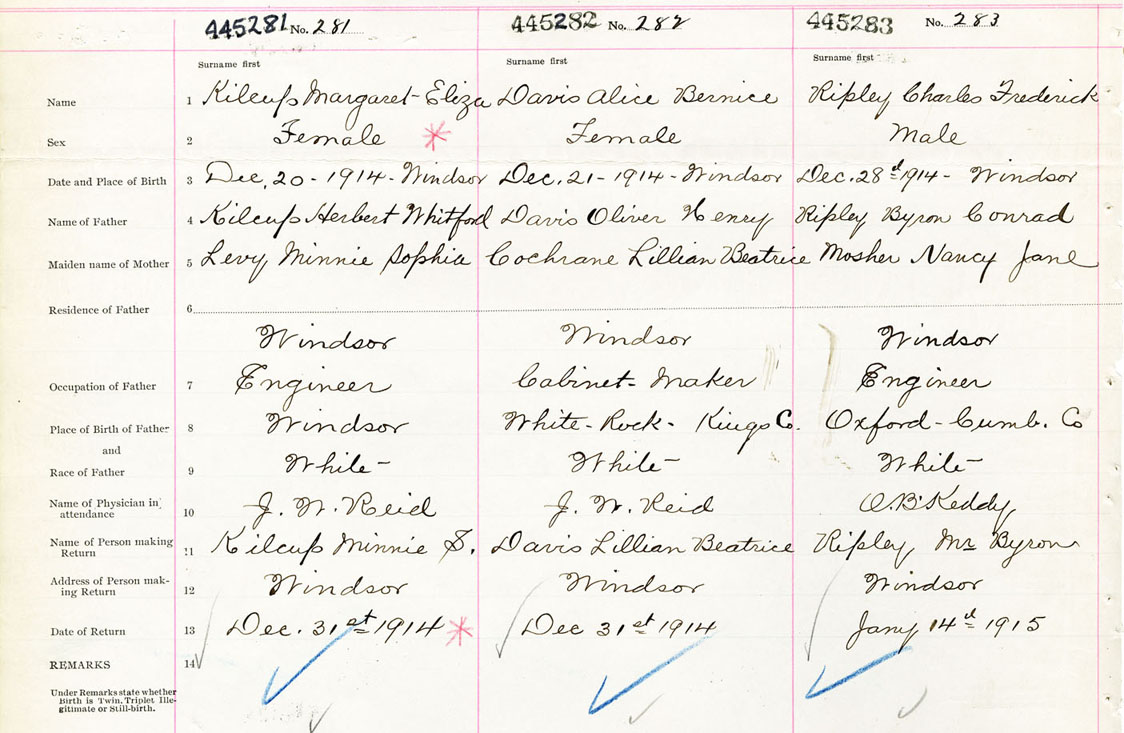 445281 No. 281 445282 No. 282 445283 No. 283
Surname first Surname first Surname first
Name 1 Kilcup Margaret Eliza Davis Alice Bernice Ripley Charles Frederick
Sex 2 Female * Female Male
Date and Place of Birth 3 Dec, 20 - 1914 - Windsor Dec. 21 - 1914 - Windsor Dec. 28d 1914 - Windsor
Name of Father 4 Kilcup Herbert Whitford Davis Oliver Henry Ripley Byron Conrad
Maiden name of Mother 5 Levy Minnie Sophia Cochrane Lillian Beatrice Mosher Nancy Jane
Residence of Father 6
Windsor Windsor Windsor
Occupation of Father 7 Engineer Cabinet-Maker Engineer
Place of Birth of Father 8 Windsor White-Rock - Kings Co. Oxford - Cumb. Co
and
Race of Father 9 White White White
Name of Physician in attendance 10 J. W. Reid J. W. Reid O.B. Keddy
Name of Person making Return 11 Kilcup Minnie S. Davis Lillian Beatrice Ripley, Mr Byron
Address of Person mak-ing Return 12 Windsor Windsor Windsor
Date of Return 13 Dec. 31st 1914 * Dec 31st 1914 Jany 14d 1915
REMARKS 14
Under Remarks state whether
Birth is Twin, Triplet Ille-
gitimate or Still-birth.